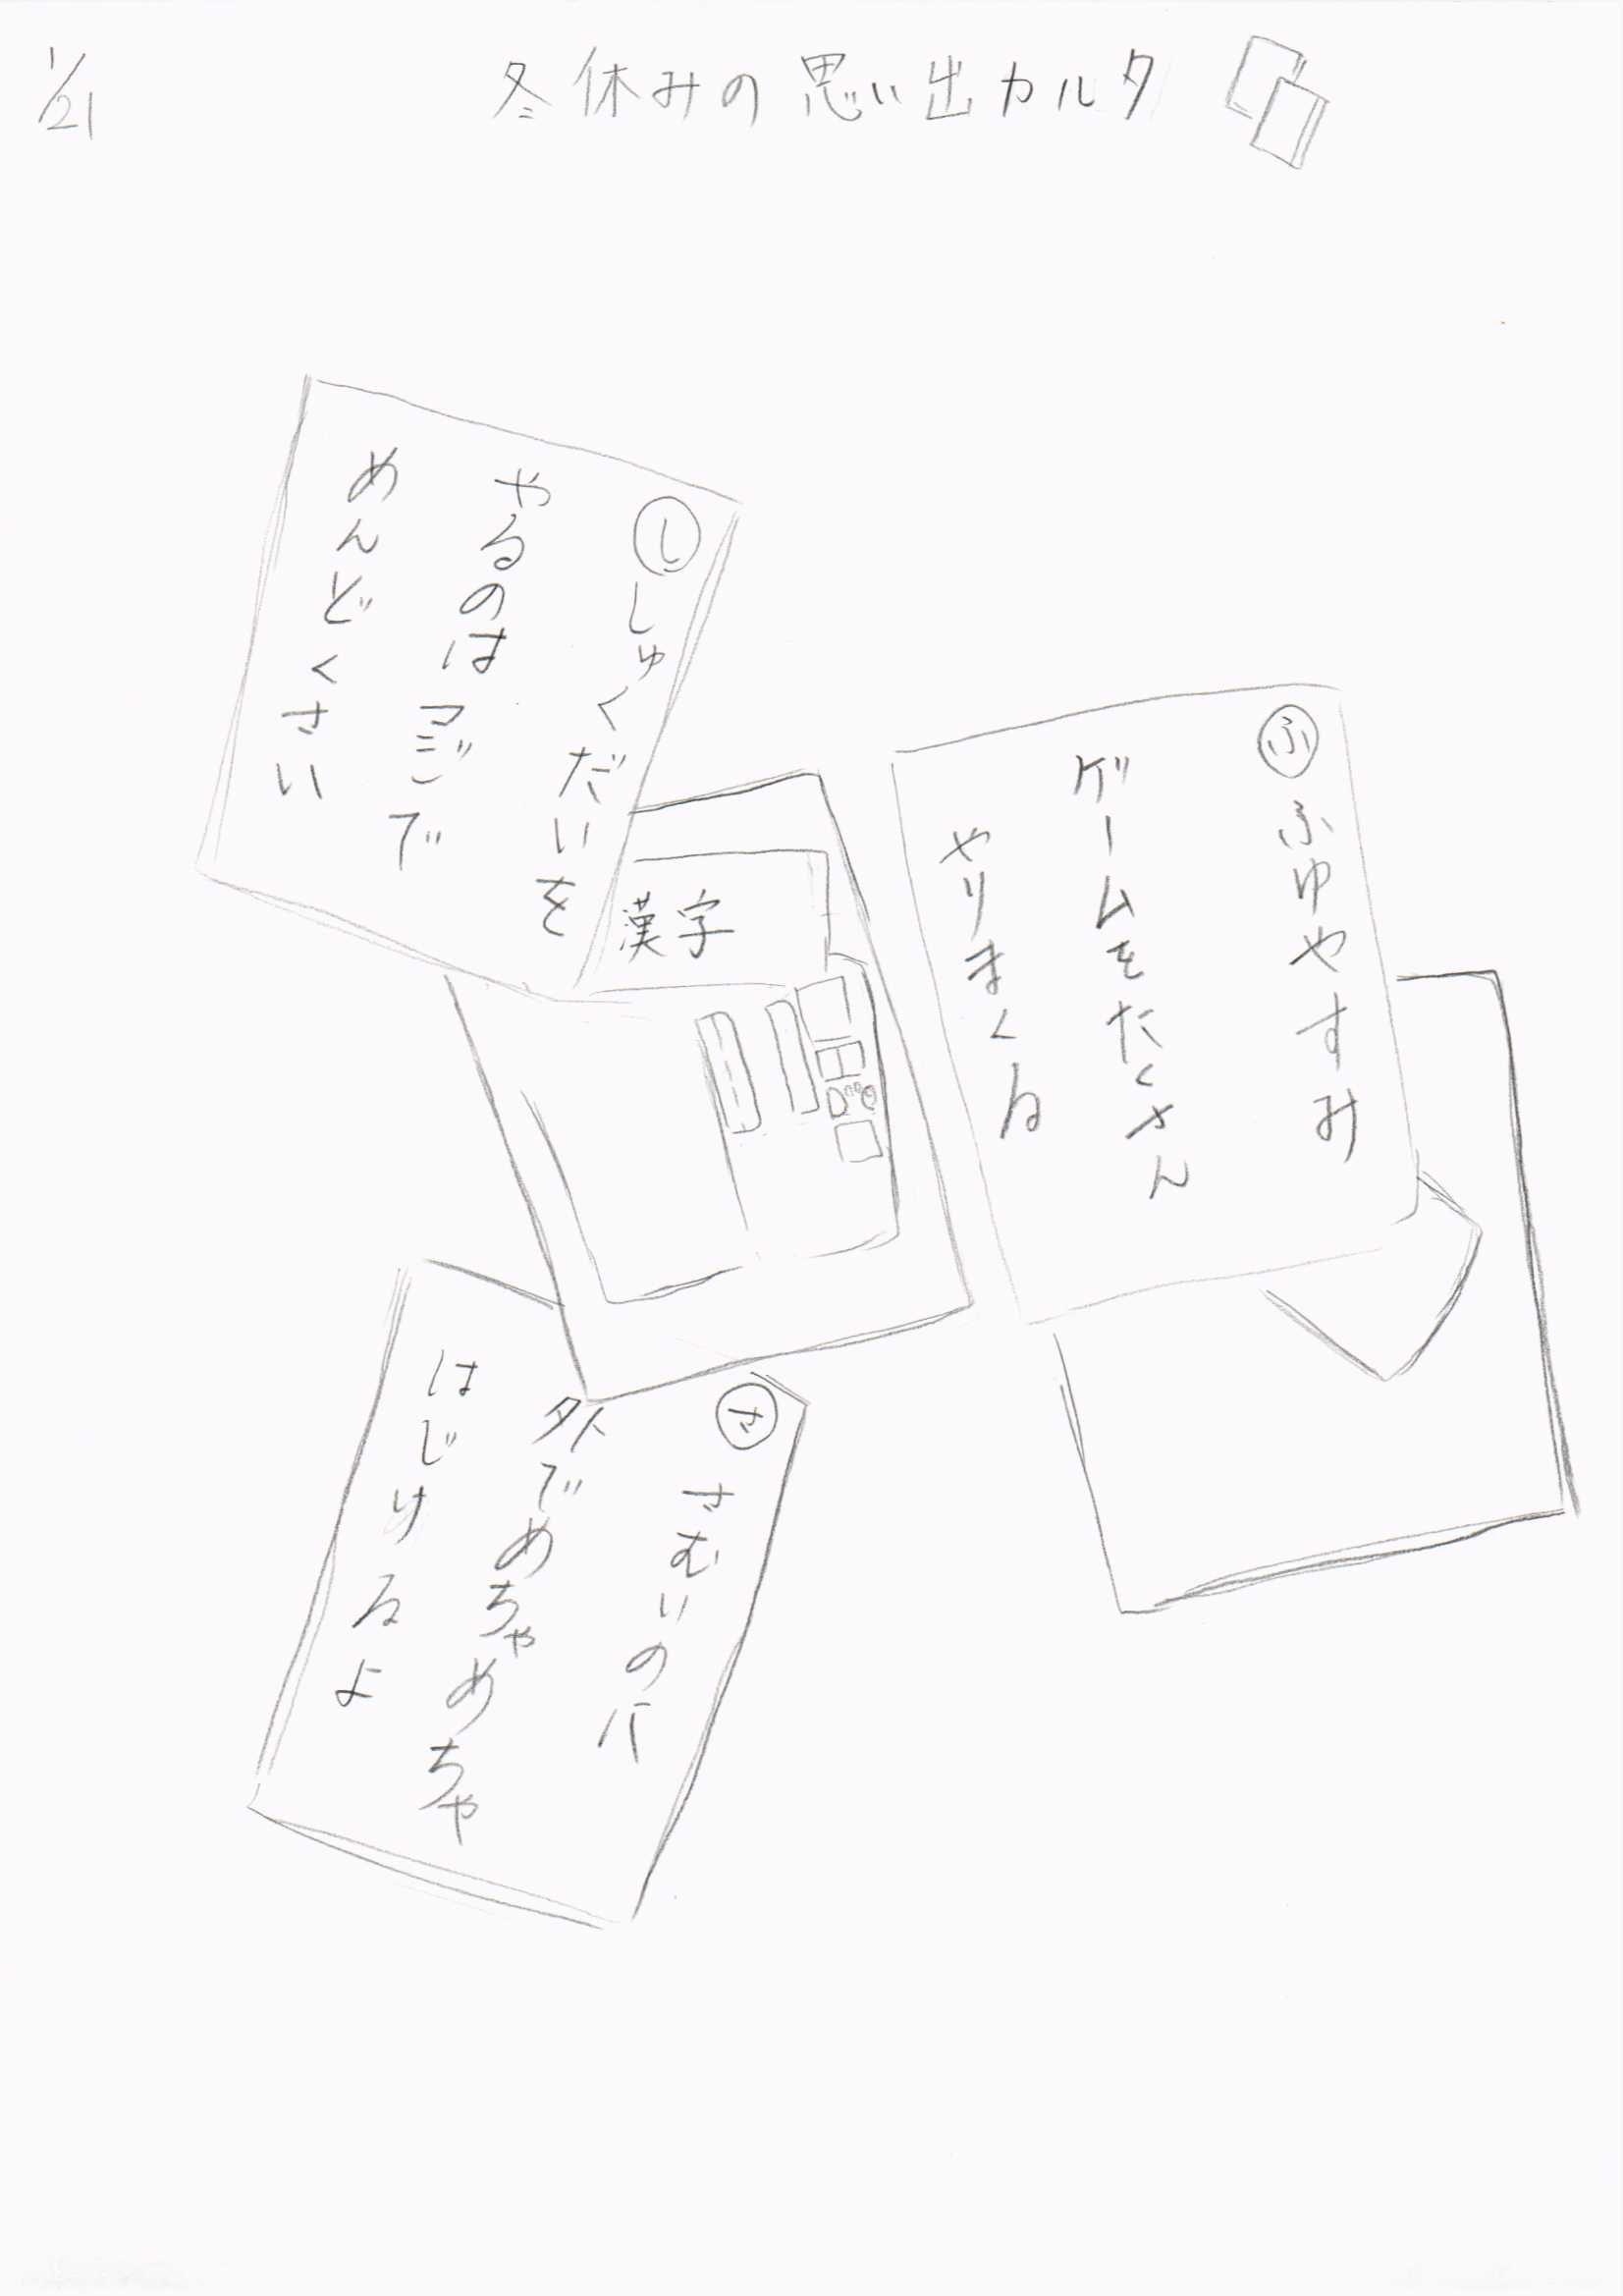 1/21
冬休みの思い出カルタ
し
しゅくだいを
やるのはマジで
めんどくさい
漢字
ふ
ふゆやすみ
ゲームをたくさん
やりまくる
さ
さむいのに
外でめちゃめちゃ
はじけるよ